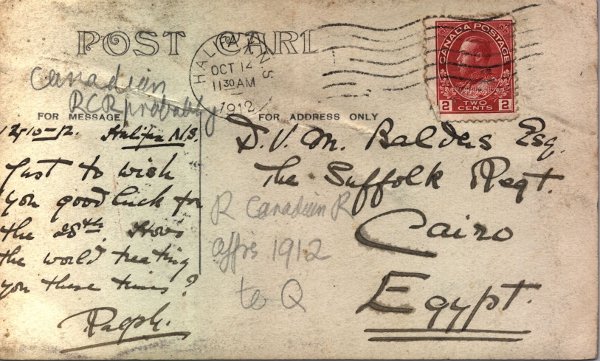 POST CARD
HALIFAX N.S.
OCT 14
11 30 AM
1912
CANADA POSTAGE
2 TWO CENTS 2
Canadian
RCR probably
FOR MESSAGE
FOR ADDRESS ONLY
12-10-12. Halifax N.S.
Just to wish
you good luck for
the 28th. How's
the world treating
you these times?
Ralph.
D.V.M. Balders Esq.
The Suffolk Regt.
Cairo
Egypt.
R Canadian R
offrs 1912
to Q